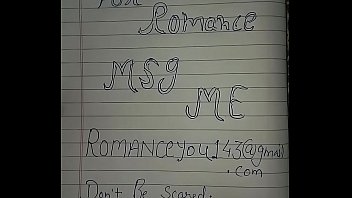 For
Romance
MSg
ME
ROMANCEYOU143@gmail
.com
Don't Be Scared.